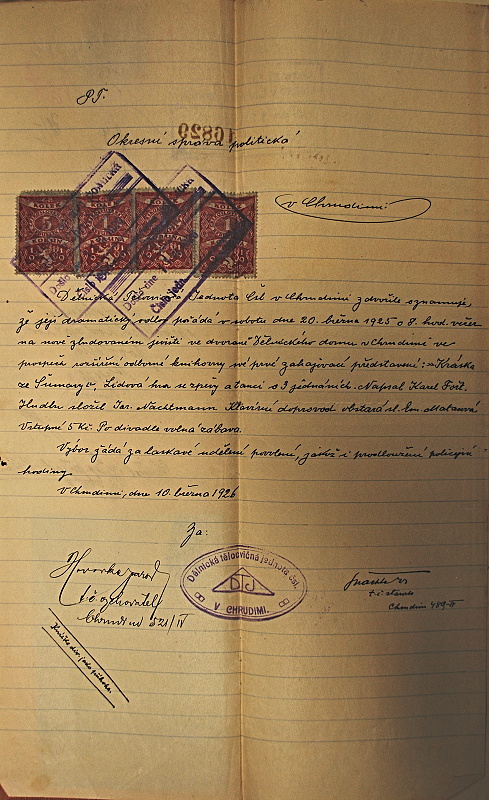 PT.
16829
Okresní správa politická
v Chrudimi
5
1
1
1
Dělnická Tělocvičná Jednota Čsl. v Chrudimi zdvořile oznamuje,
že její dramatický odbor pořádá v sobotu dne 20. března 1925 o 8. hod. večer
na nově zbudovaném jevišti ve dvoraně Dělnického domu v Chrudimi ve
prospěch rozšíření odborné knihovny své prvé zahajovací představení: "Kráska
ze Šumavy". Lidová hra se zpěvy a tanci o 3 jednáních. Napsal Karel Fořt.
Hudbu složil Jar. Nachtmann Klavírní doprovod obstará sl. Em.
Vstupné 5 Kč. Po divadle volná zábava.
Výbor žádá za laskavé udělení povolení, jakož i prodloužení policejní
hodiny.
V Chrudimi, dne 10. března 1926
Za:
Dělnická tělocvičná jednota čsl.
DTJ
V CHRUDIMI.
t. č. starosta
Chrudim 489-II
Chrudim 521/IV